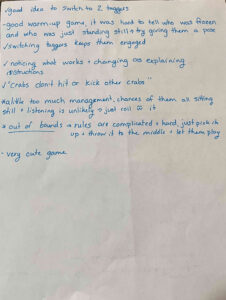 - good idea to switch to 2 taggers
- good warm-up game, it was hard to tell who was frozen
and who was just standing still → try giving them a pose
✓ switching taggers keeps them engaged
✓ noticing what works + changing as explaining
instructions
✓ "Crabs don't hit or kick other crabs"
* a little too much management, chances of them all sitting
still + listening is unlikely → just roll it
* out of bounds rules are complicated + hard, just pick it
up + throw it to the middle + let them play
- very cute game